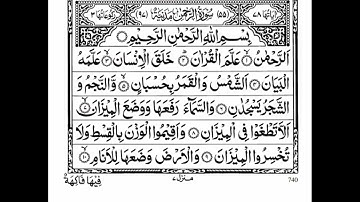 اٰیَاتُهَا ٧٨ (٥٥) سُوْرَةُ الرَّحْمٰنِ مَدَنِيَّةٌ (٩٧) رُكُوْعَاتُهَا ٣
بِسْمِ اللّٰهِ الرَّحْمٰنِ الرَّحِيْمِ
اَلرَّحْمٰنُ ۝١ عَلَّمَ الْقُرْاٰنَ ۝٢ خَلَقَ الْاِنْسَانَ ۝٣ عَلَّمَهُ
الْبَيَانَ ۝٤ اَلشَّمْسُ وَالْقَمَرُ بِحُسْبَانٍ ۝٥ وَّالنَّجْمُ وَ
الشَّجَرُ يَسْجُدٰنِ ۝٦ وَالسَّمَآءَ رَفَعَهَا وَوَضَعَ الْمِيْزَانَ ۝٧
اَلَّا تَطْغَوْا فِي الْمِيْزَانِ ۝٨ وَاَقِيْمُوا الْوَزْنَ بِالْقِسْطِ وَلَا
تُخْسِرُوا الْمِيْزَانَ ۝٩ وَالْاَرْضَ وَضَعَهَا لِلْاَنَامِ ۝١٠
فِيْهَا فَاكِهَةٌ منزل ٧ 740